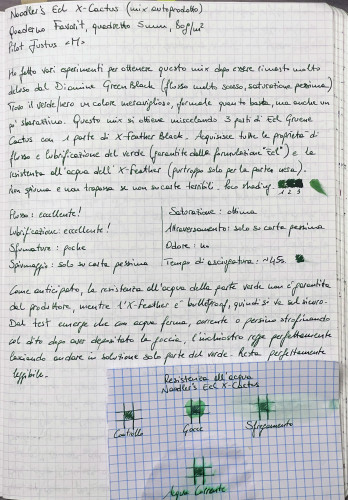 Noodler's Eel X-Cactus (mix autoprodotto)
Quaderno Favorit, quadretto 5mm, 80g/m²
Pilot Justus <M>
Ho fatto vari esperimenti per ottenere questo mix dopo essere rimasto molto
deluso dal Diamine Green Black (flusso molto scarso, saturazione pessima)
Trovo il verde/nero un colore meraviglioso, formale quanto basta, ma anche un
po' sbarazzino. Questo mix si ottiene miscelando 3 parti di Eel Gruene
Cactus con 1 parte di X-Feather Black. Acquisisce tutte le proprietà di
flusso e lubrificazione del verde (garantite dalla formulazione "Eel") e la
resistenza all'acqua dell'X-Feather (purtroppo solo per la parte nera).
Non spiuma e non trapassa se non su carte terribili. Poco shading.
1 2 3
Flusso: eccellente!
Lubrificazione: eccellente!
Sfumature: poche
Spiumaggio: solo su carta pessima
Saturazione: ottima
Attraversamento: solo su carta pessima
Odore: no
Tempo di asciugatura: ~45s
Come anticipato, la resistenza all'acqua della parte verde non è garantita
dal produttore, mentre l'X-Feather è bulletproof, quindi si va sul sicuro.
Dal test emerge che con acqua ferma, corrente o persino strofinando
col dito dopo aver depositato la goccia, l'inchiostro regge perfettamente
lasciando andare in soluzione solo parte del verde. Resta perfettamente
leggibile.
Resistenza all'acqua
Noodler's Eel X-Cactus
Controllo
Gocce
Sfregamento
Acqua Corrente